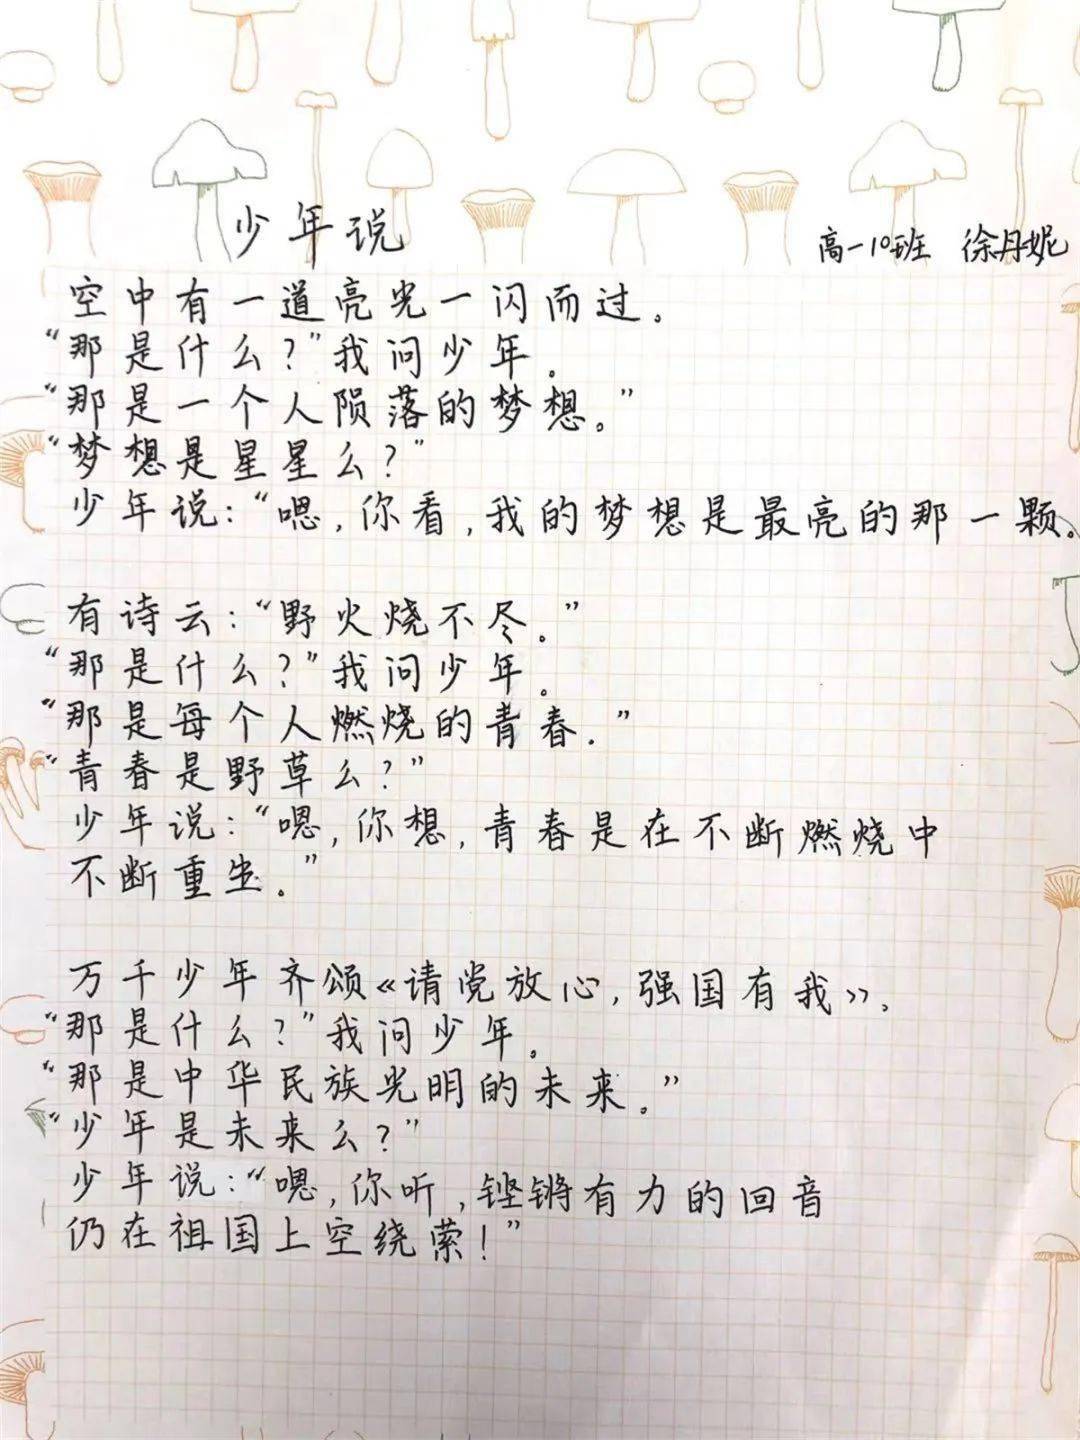 少年说
高一10班 徐月妮
空中有一道亮光一闪而过。
“那是什么?”我问少年。
“那是一个人陨落的梦想。”
“梦想是星星么?”
少年说:“嗯,你看,我的梦想是最亮的那一颗。
有诗云:“野火烧不尽。”
“那是什么?”我问少年。
“那是每个人燃烧的青春.”
“青春是野草么?”
少年说:“嗯,你想,青春是在不断燃烧中
不断重生.”
万千少年齐颂《请党放心,强国有我》.
“那是什么?”我问少年。
“那是中华民族光明的未来.”
“少年是未来么?”
少年说:“嗯,你听,铿锵有力的回音
仍在祖国上空绕萦!”